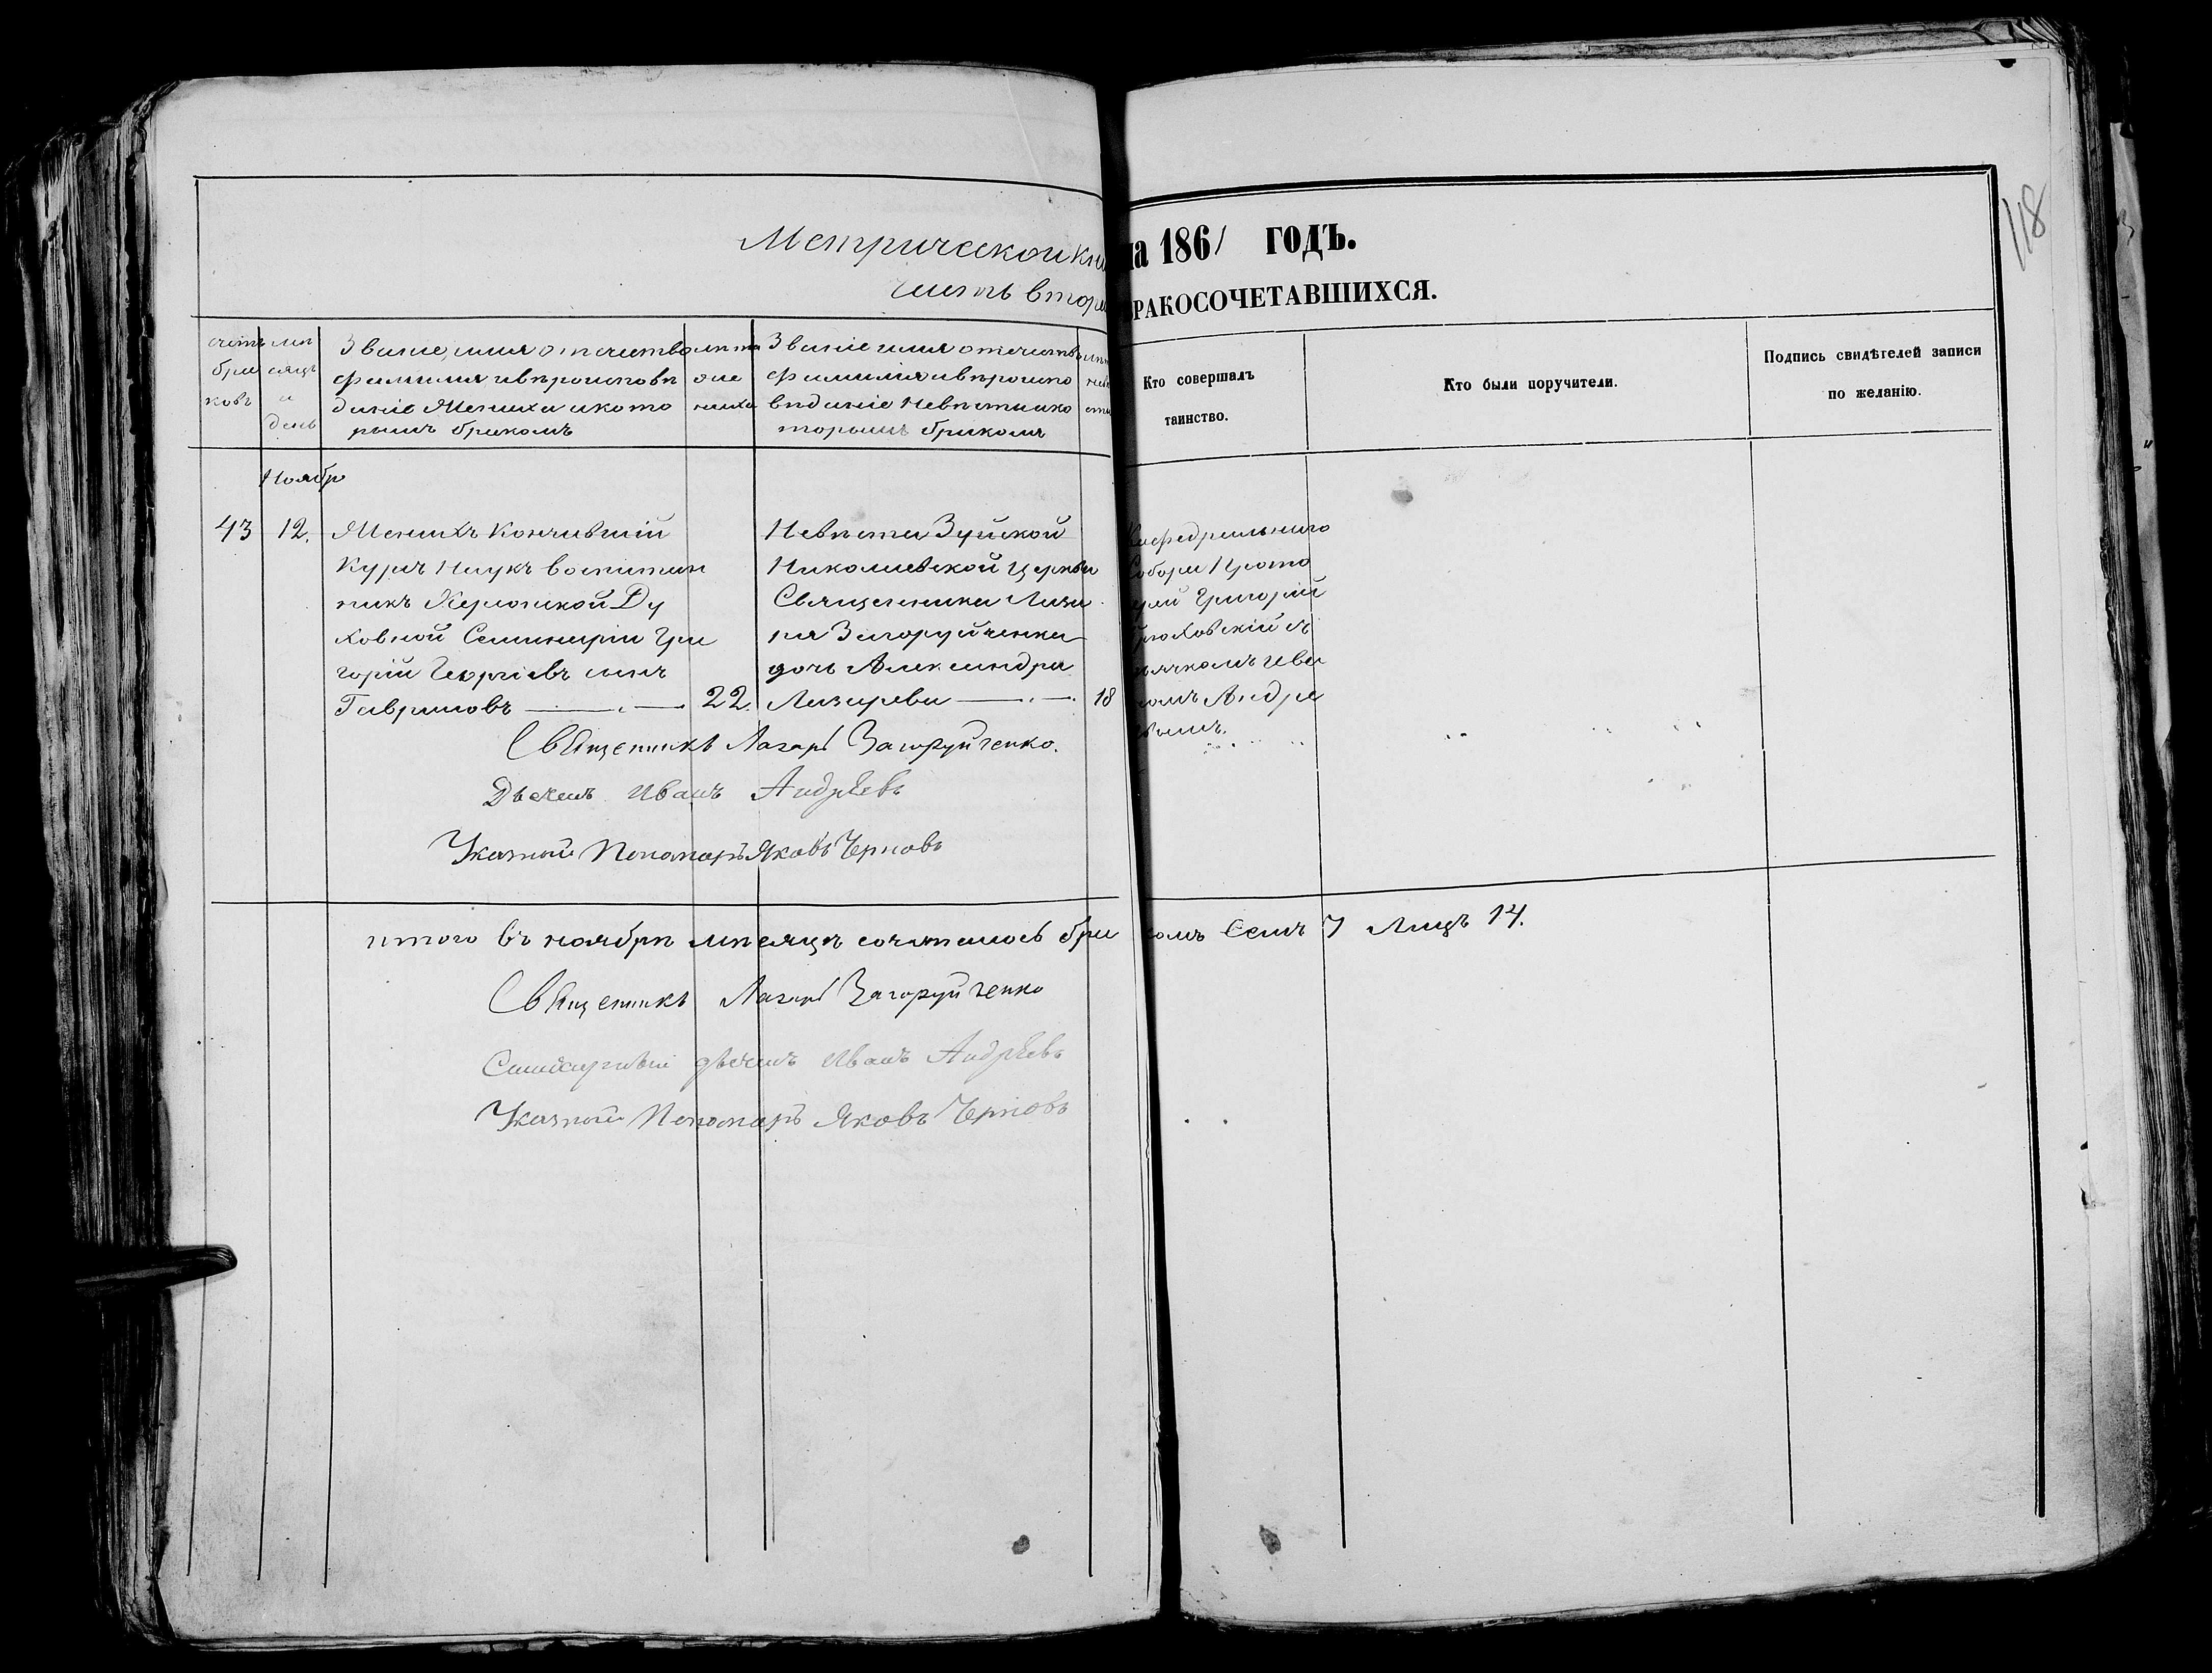 118
Метрической кни на 1861 ГОДЪ.
часть втора БРАКОСОЧЕТАВШИХСЯ.
счетъ браковъ
мѣсяцъ и день
Званіе, имя отечество
фамилія и вѣроисповѣ
даніе Жениха и кото
рымъ бракомъ
лѣта
же
ниха
Званіе имя отечество
фамилія и вѣроиспо
вѣданіе Невѣсты и ко
торымъ бракомъ
лѣта
невѣ
сты
Кто совершалъ
таинство.
Кто были поручители.
Подпись свидѣтелей записи
по желанію.
Ноябр
43 12. Женихъ Кончившій
Курсъ Наукъ воспитан
никъ Херсонской Ду
ховной Семинаріи Гри
горій Георгіевъ сынъ
Гавриловъ 22.
Невѣста Зуйской
Николаевской Церкви
Священника Лаза
ря Загоруйченка
дочь Александра
Лазарева 18
Кафедральнаго
Собора Прото
ерей Григорій
съ
дьячкомъ Ива
номъ Андре
вымъ.
Священникъ Лазарь Загоруйченко.
Дьячекъ Иванъ Андрѣевъ
Указной Пономарь Яковъ Черновъ
итого въ ноябрѣ мѣсяцѣ сочеталось бра комъ Семь 7 Лицъ 14.
Священникъ Лазарь Загоруйченко
дьячекъ Иванъ Андрѣевъ
Указной Пономарь Яковъ Черновъ